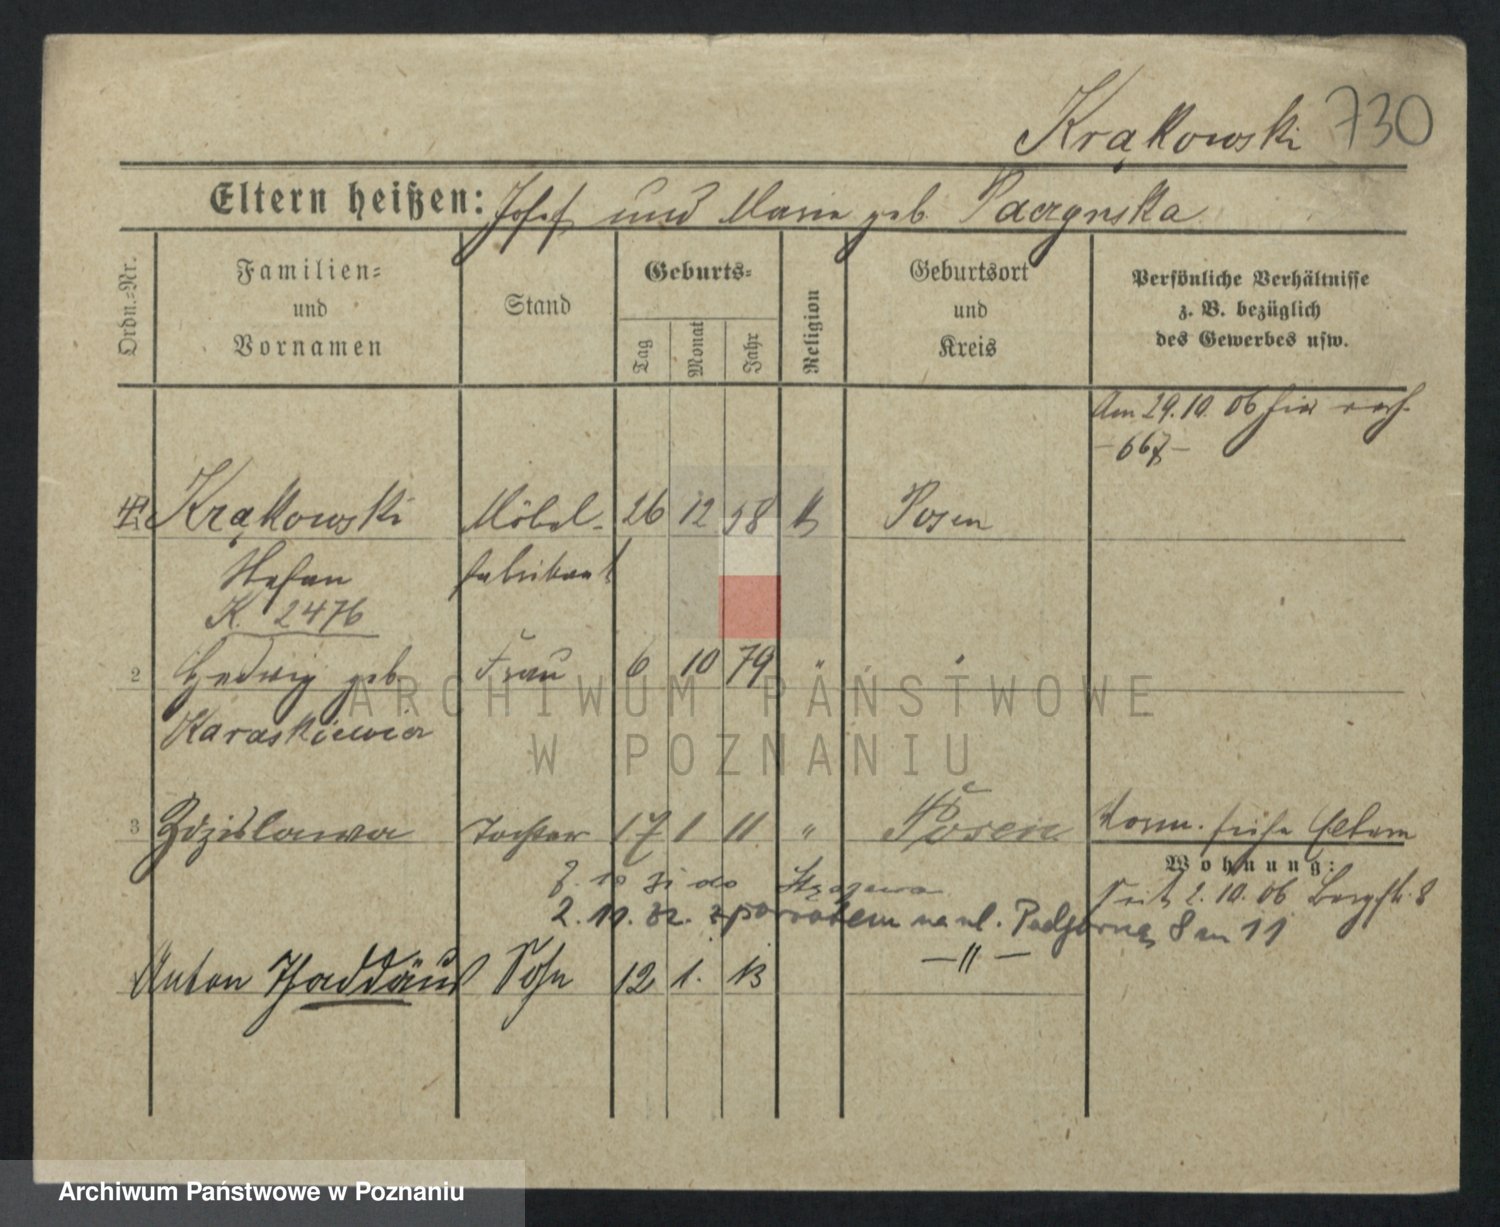 Krąkowski 730
Eltern heißen: Josef und Marie geb. Paczynska
Ordn.-Nr.
Familien-
und
Vornamen
Stand
Geburts-
Tag
Monat
Jahr
Religion
Geburtsort
und
Kreis
Persönliche Verhältnisse
z. B. bezüglich
des Gewerbes usw.
Am 29.10.06 hier
- 667 -
Krąkowski Möbel- 26 12 78 k Posen
Stefan fabrikant
K. 2476
2 Hedwig geb. Frau 6 10 79 "
Karaskiewicz
3 Zdzislawa Tochter 17 1 11 " Posen Norm. siehe Eltern
Wohnung:
Seit 2.10.06 Bergstr. 8
2.10.32. z powrotem na ul. Podgórną 8 m 11
Anton Thaddäus Sohn 12 1. 13 — " —
ARCHIWUM PAŃSTWOWE
W POZNANIU
Archiwum Państwowe w Poznaniu